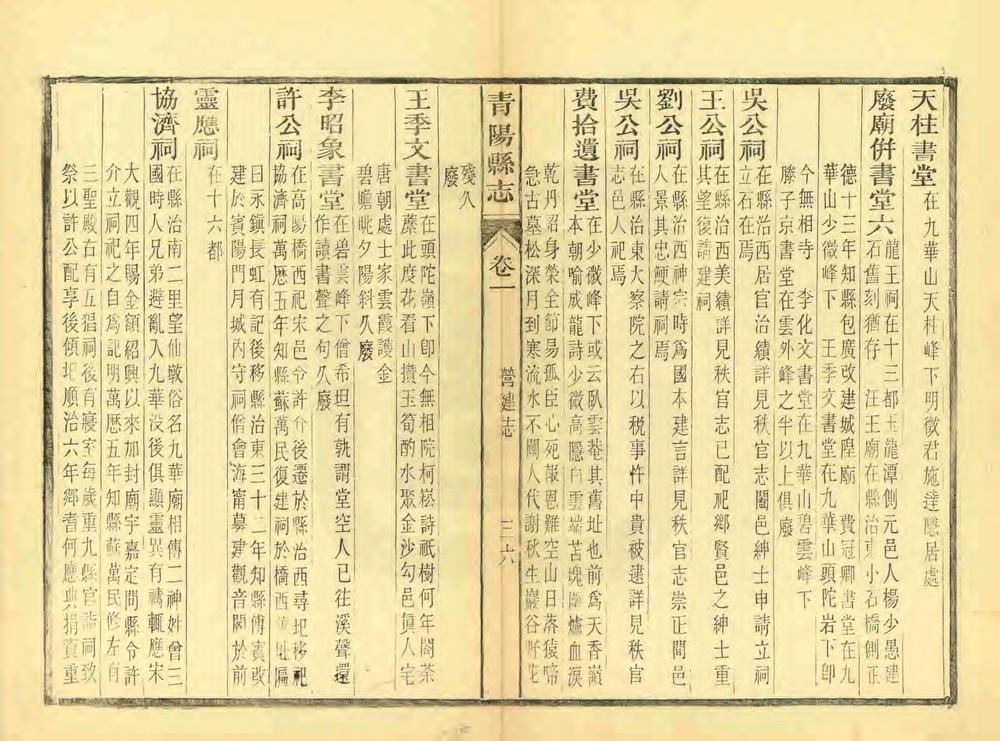 天柱書堂在九華山天柱峰下明徵君施達隱居處
廢廟併書堂六龍王祠在十三都玉龍潭側元邑人楊少愚建
石舊刻猶存　汪王廟在縣治東小石橋側正
德十三年知縣包廣改建城隍廟　費冠卿書堂在九
華山少微峰下　王季文書堂在九華山頭陀岩下卽
今無相寺　李化文書堂在九華山碧雲峰下
滕子京書堂在雲外峰之半以上俱廢
吳公祠在縣治西居官治績詳見秩官志闔邑紳士申請立祠
立石在焉
王公祠在縣治西美績詳見秩官志已配祀鄉賢邑之紳士重
其望復請建祠
劉公祠在縣治西神宗時爲國本建言詳見秩官志崇正間邑
人景其忠鯁請祠焉
吳公祠在縣治東大察院之右以税事忤中貴被逮詳見秩官
志邑人祀焉
費拾遺書堂在少微峰下或云臥雲菴其舊址也前爲天香嶺
本朝喻成龍詩少微高隱白雲端苫塊廬血淚
乾丹沼身榮全節易孤臣心死報恩難空山日落猿啼
急古墓松深月到寒流水不關人代謝秋生巖谷野花
青陽縣志　卷二　營建志　三六
殘久
廢
王季文書堂在頭陀嶺下卽今無相院柯崧詩祇樹何年闢茶
蘼此度花看山攢玉筍酌水聚金沙勾邑眞人宅
唐朝處士家雲霞護金
碧瞻眺夕陽斜久廢
李昭象書堂在碧雲峰下僧希坦有孰謂堂空人已往溪聲還
作讀書聲之句久廢
許公祠在高陽橋西祀宋邑令許介後遷於縣治西尋圯移祀
協濟祠萬厯五年知縣蘇萬民復建祠於橋西址偏
曰永鎮長虹有記後移縣治東三十二年知縣傅賓或
建於賓陽門月城內守祠僧會海甯募建觀音閣於前
靈應祠在十六都
協濟祠在縣治南二里望仙墩俗名九華廟相傳二神姓曾三
國時人兄弟避亂入九華没後俱顯靈異有禱輒應宋
大觀四年賜金額紹興以來加封廟宇嘉定間縣令許
介立祠祀之自爲記明萬厯五年知縣蘇萬民修左有
三聖殿右有五猖祠後有寢室每歲重九縣官詣祠致
祭以許公配享後傾圯順治六年鄉耆何應典捐資重